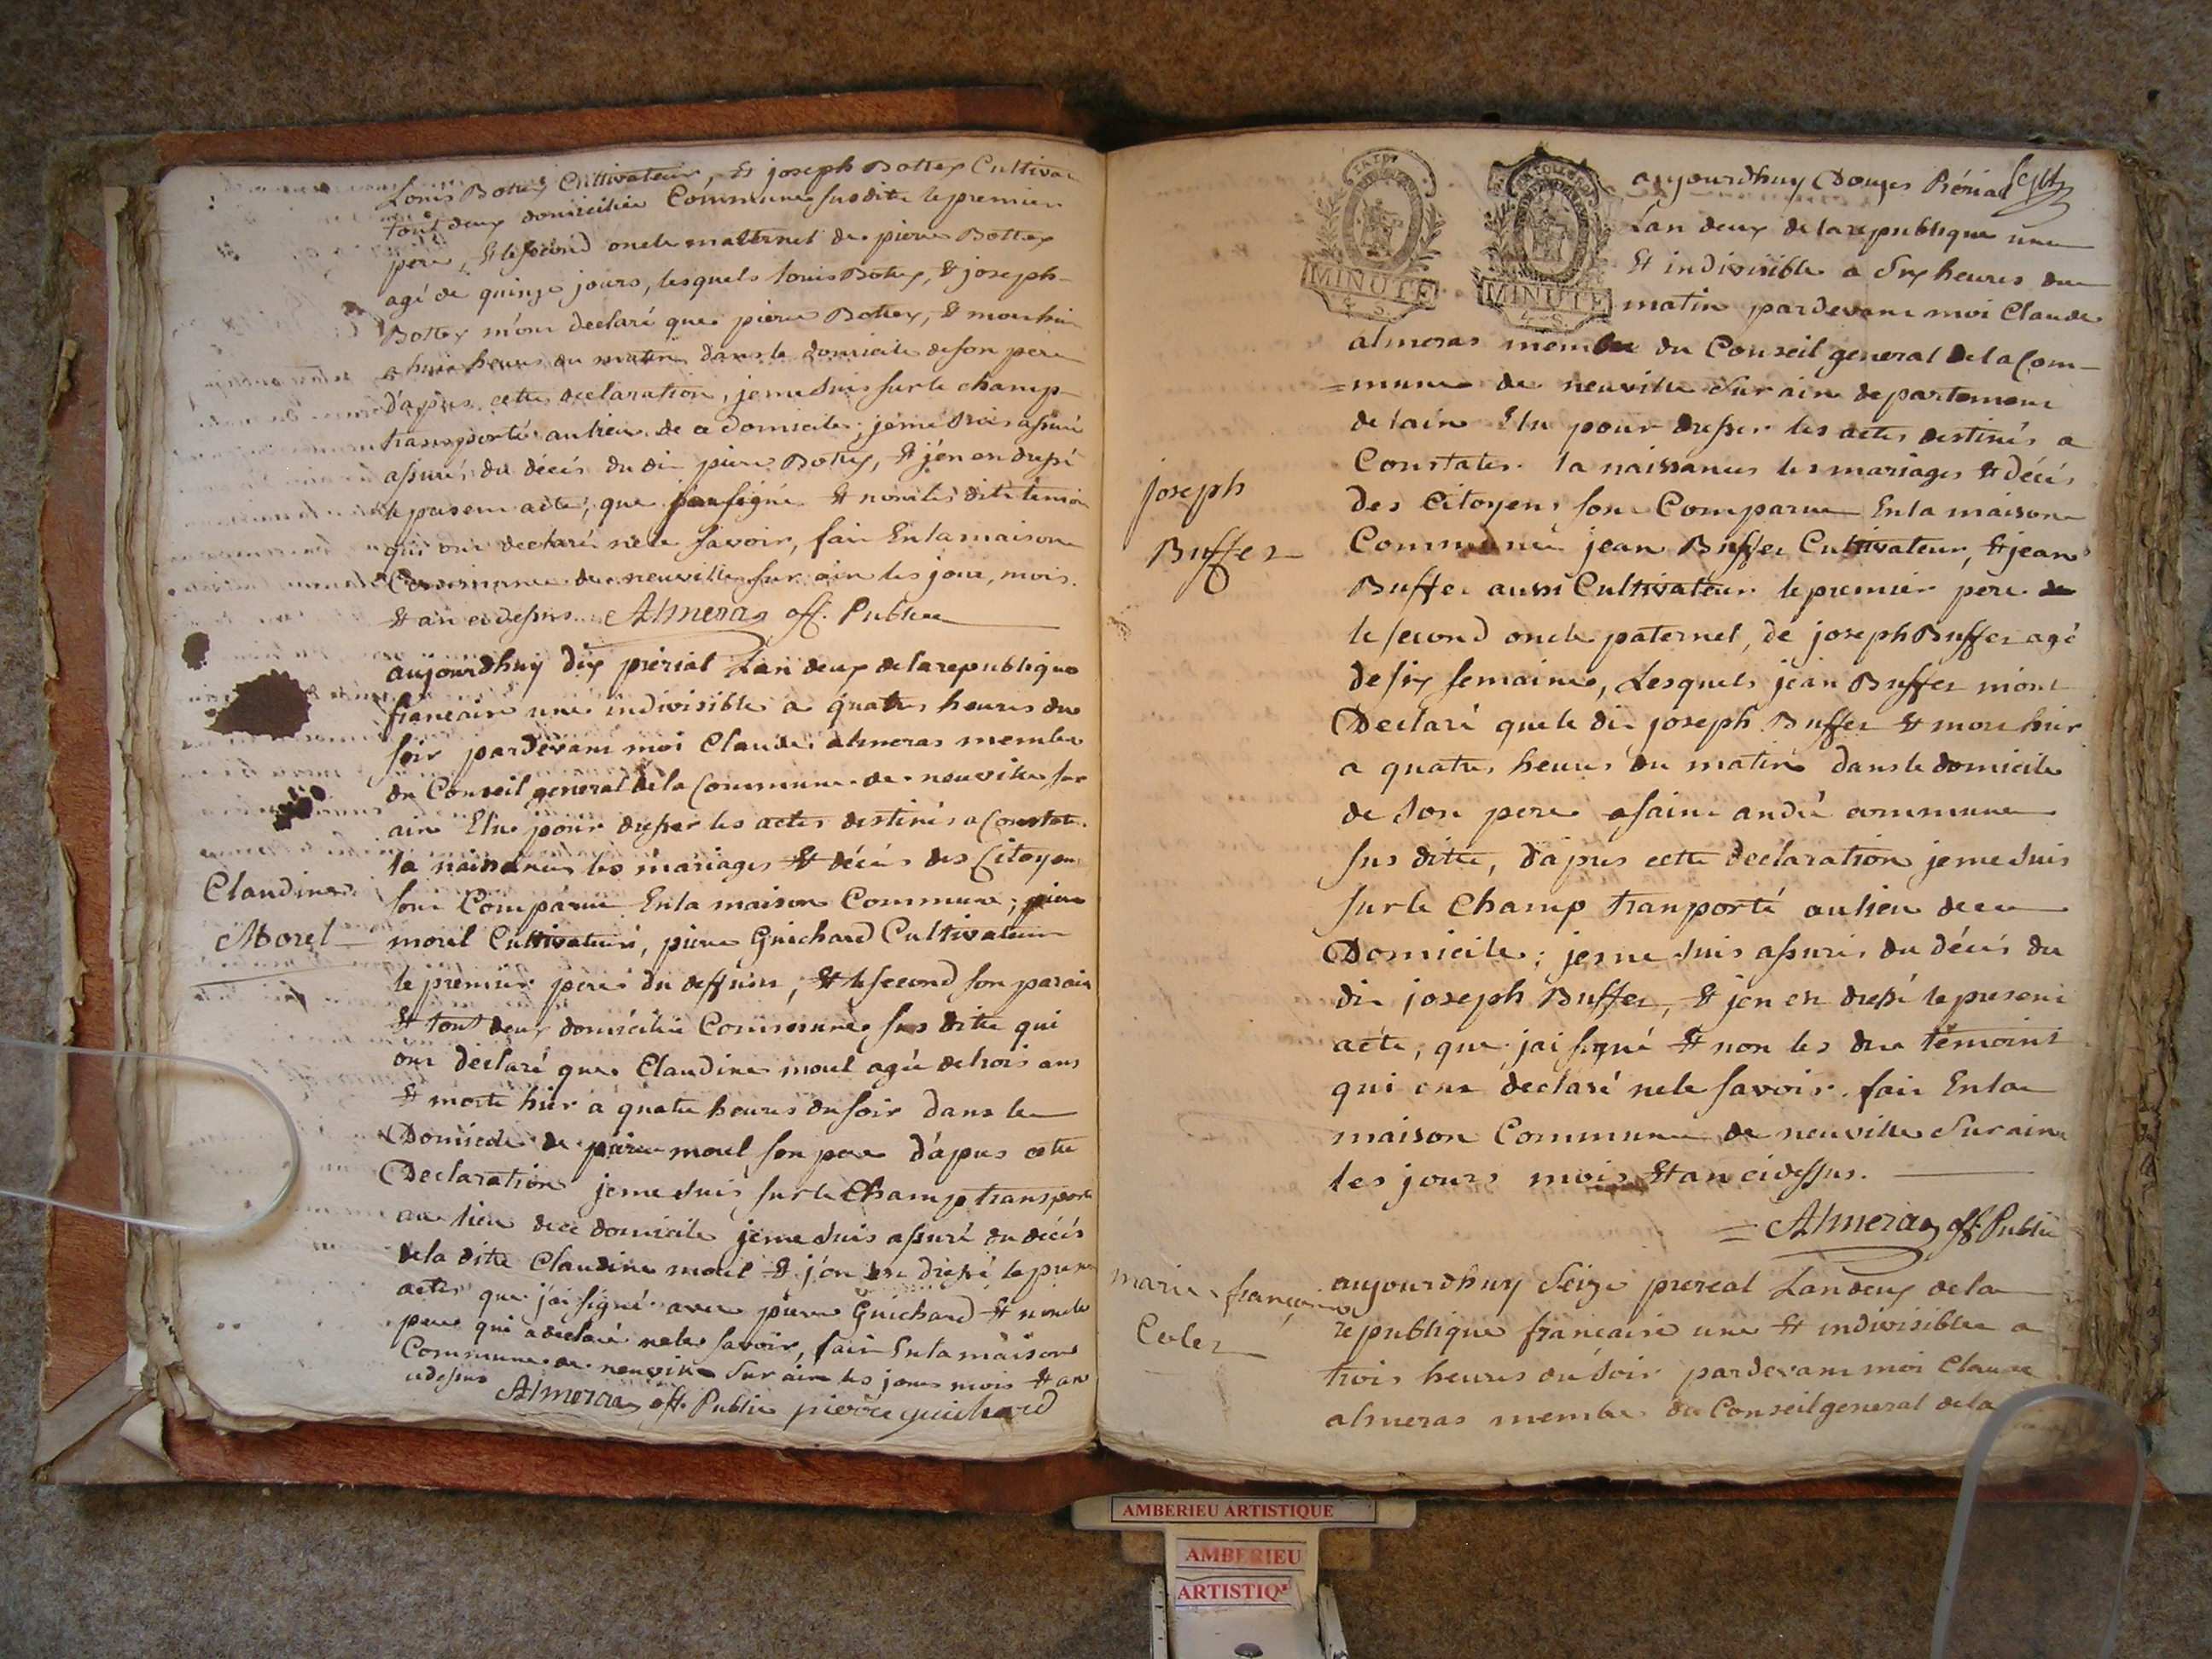 Louis Bottex Cultivateur, Et joseph Bottex Cultiva
tout deux domicilié Commune susdite le premier
pere, Et le second oncle maternel de pierre Bottex
agé de quinze jours, lesquels louis Bottex, Et joseph
Bottex m'ont declaré que pierre Bottex, Et mort hier
a huit heures du matin dans le domicile de son pere
d'apres cette declaration, je me suis sur le champ
transporté au lieu de ce domicile, je me suis assuré
assuré du décés du dit pierre Bottex, Et j'en en dressé
le present acte, que jai signé Et non les dite temoin
qui ont declaré ne le savoir, fait En la maison
Commune de neuville sur ain les jour, mois
Et an ci dessus. Almeras off. Public
aujourdhuy dix prerial Lan deux de la republique
francaise une indivisible a quatre heures du
soir pardevant moi Claude almeras membre
du Conseil general de la Commune de neuville sur
ain Elu pour dresser les actes destinés a Constate
la naissances les mariages Et décés des Citoyens
Claudine
sont Comparue En la maison Commune, pierre
Morel
morel Cultivateur, pierre Guichard Cultivateur
le premier pere du deffunt, Et le second son parain
Et tout deux domicilié Commune sus dite qui
ont declaré que Claudine morel agée de trois ans
Et morte hier a quatre heures du soir dans le
Domicile de pierre morel son pere d'apres cette
Declaration je me suis sur le Champ transporté
au lieu de ce domicile je me suis assuré du décés
de la dite Claudine morel Et j'en en dressé le present
actes que j'ai signé avec pierre Guichard Et non le
pere qui a declaré ne le savoir, fait En la maison
Commune de neuville Sur ain les jours mois Et an
ci dessus Almeras off. Public pierre guichard
MINUTE
4. S.
MINUTE
4. S.
aujourdhuy Douzes Rérial
Lan deux de la republique une
Et indivisible a dix heures du
matin pardevant moi Claude
almeras membre du Conseil general de la Com-
=mune de neuville Sur ain departement
de lain Elu pour dresser les actes destinés a
Constater la naissances les mariages Et décés
joseph
des Citoyens sont Comparue En la maison
Buffet
Commune jean Buffet Cultivateur, Et jean
Buffet aussi Cultivateur le premier pere
le second oncle paternel, de joseph Buffet agé
de six semaines, Lesquels jean Buffet mont
Declaré que le dit joseph Buffet Et mort hier
a quatre heures du matin dans le domicile
de son pere a saint andré commune
sus ditte, d'apres cette declaration je me suis
sur le Champ tranporté au lieu de ce
Domicile; je me suis assurés du décés du
dit joseph Buffet, Et jen en dressé le present
acte, que jai signé Et non les dit temoins
qui ont declaré ne le savoir. fait En la
maison Commune de neuville Sur ain
les jours mois Et an ci dessus.
= Almeras off. Public
marie françoise
aujourdhuy Seize prereal Lan deux de la
republique francaise une Et indivisible a
trois heures du soir pardevant moi Claude
almeras membre du Conseil general de la
AMBERIEU ARTISTIQUE
AMBERIEU
ARTISTIQ